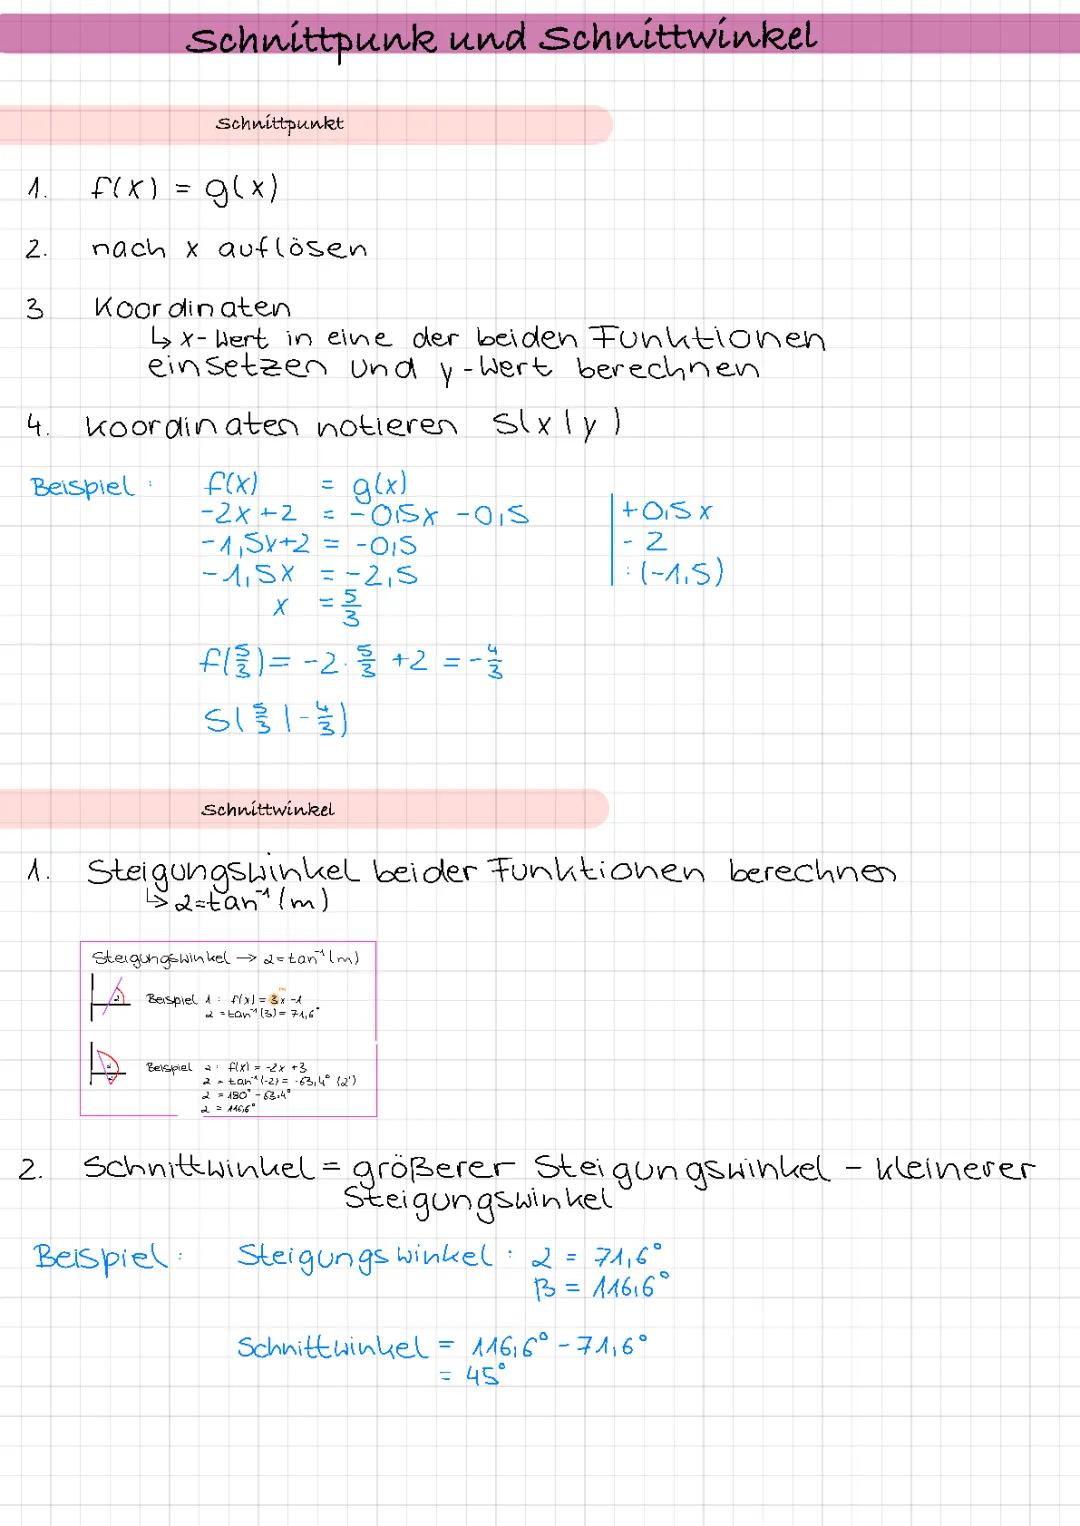 Schnittpunk und Schnittwinkel
Schnittpunkt
1. f(x) = g(x)
2. nach x auflösen
3 Koordinaten
↳ x-Wert in eine der beiden Funktionen
einsetzen und y-Wert berechnen
4. Koordinaten notieren S(x|y)
Beispiel: f(x) = g(x)
-2x+2 = -0,5x -0,5 |+0,5x
-1,5x+2 = -0,5 |-2
-1,5x = -2,5 |:(-1,5)
x = 5/3
f(5/3) = -2·5/3 +2 = -4/3
S(5/3|-4/3)
Schnittwinkel
1. Steigungswinkel beider Funktionen berechnen
↳ α=tan⁻¹(m)
Steigungswinkel → α=tan⁻¹(m)
m
Beispiel 1: f(x) = 3x -1
α = tan⁻¹(3) = 71,6°
Beispiel 2: f(x) = -2x +3
α = tan⁻¹(-2) = -63,4° (α')
α = 180° - 63,4°
α = 116,6°
2. Schnittwinkel = größerer Steigungswinkel - kleinerer
Steigungswinkel
Beispiel: Steigungswinkel: α = 71,6°
β = 116,6°
Schnittwinkel = 116,6° - 71,6°
= 45°